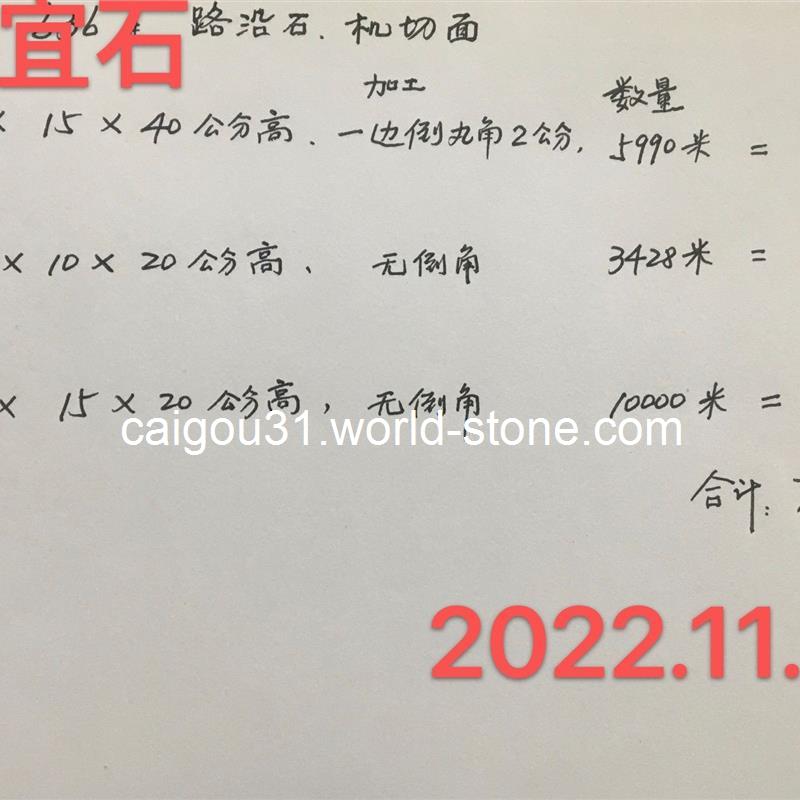 宜石
636 路沿石、机切面
加工
数量
× 15 × 40 公分高、一边倒丸角2公分,
5990米 =
× 10 × 20 公分高、 无倒角 3428米 =
× 15 × 20 公分高, 无倒角 10000米 =
caigou31.world-stone.com
合计:
2022.11.